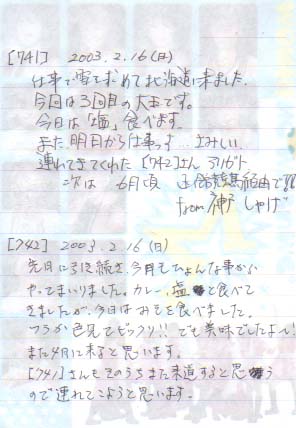 [741] 2003.2.16(日)
仕事で雪を求めて北海道に来ました.
今回は3回目の大王です。
今日は「塩」食べます.
また 明日から仕事っす… さみしい.
連れてきてくれた [742]さん アリガト
次は 6月頃 経由で
from 神戸 しゃげ
[742] 2003.2.16(日)
先日に引き続き、今月もひょんな事から
やってまいりました。カレー、塩と食べて
きましたが、今日はみそを食べました.
フタが色見てビックリ!! でも美味でしたよ~!
また4月に来ると思います。
[741]さんもそのうちまた来道すると思う
ので連れてこようと思います.